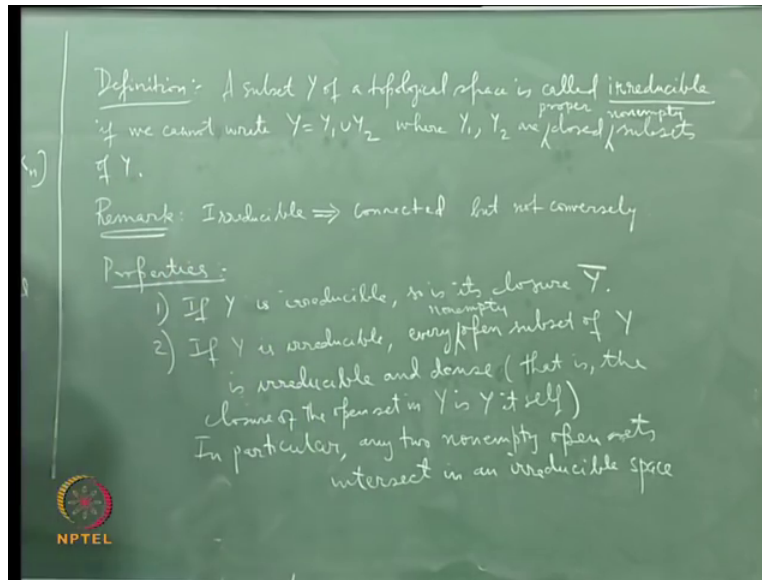 Definition:- A subset Y of a topological space is called irreducible
if we cannot write Y = Y₁ ∪ Y₂ where Y₁, Y₂ are proper closed nonempty subsets
of Y.
Remark: Irreducible ⇒ connected but not conversely
Properties:-
1) If Y is irreducible, so is its closure Y̅.
2) If Y is irreducible, every nonempty open subset of Y
is irreducible and dense (that is, the
closure of the open set in Y is Y itself)
In particular, any two nonempty open sets
intersect in an irreducible space
NPTEL